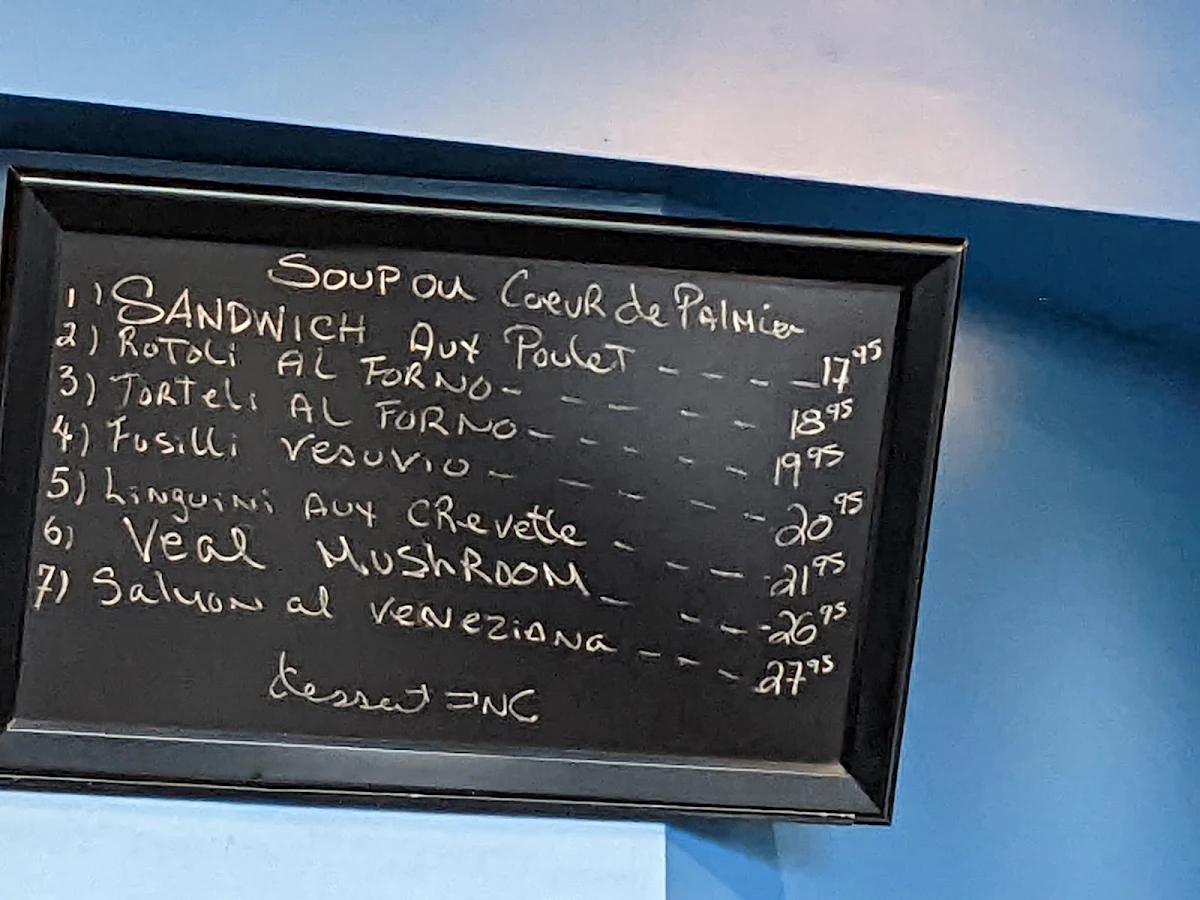 Soup ou Coeur de Palmier
1) SANDWICH Aux Poulet - - - - 17 95
2) RoToli AL FORNO - - - - - 18 95
3) TorTeli AL FORNO - - - - - 19 95
4) Fusilli vesuvio - - - - - 20 95
5) Linguini Aux CRevette - - - - 21 95
6) Veal MushROOM - - - - 26 95
7) Salmon al veneziana - - - - 27 95
dessert = NC